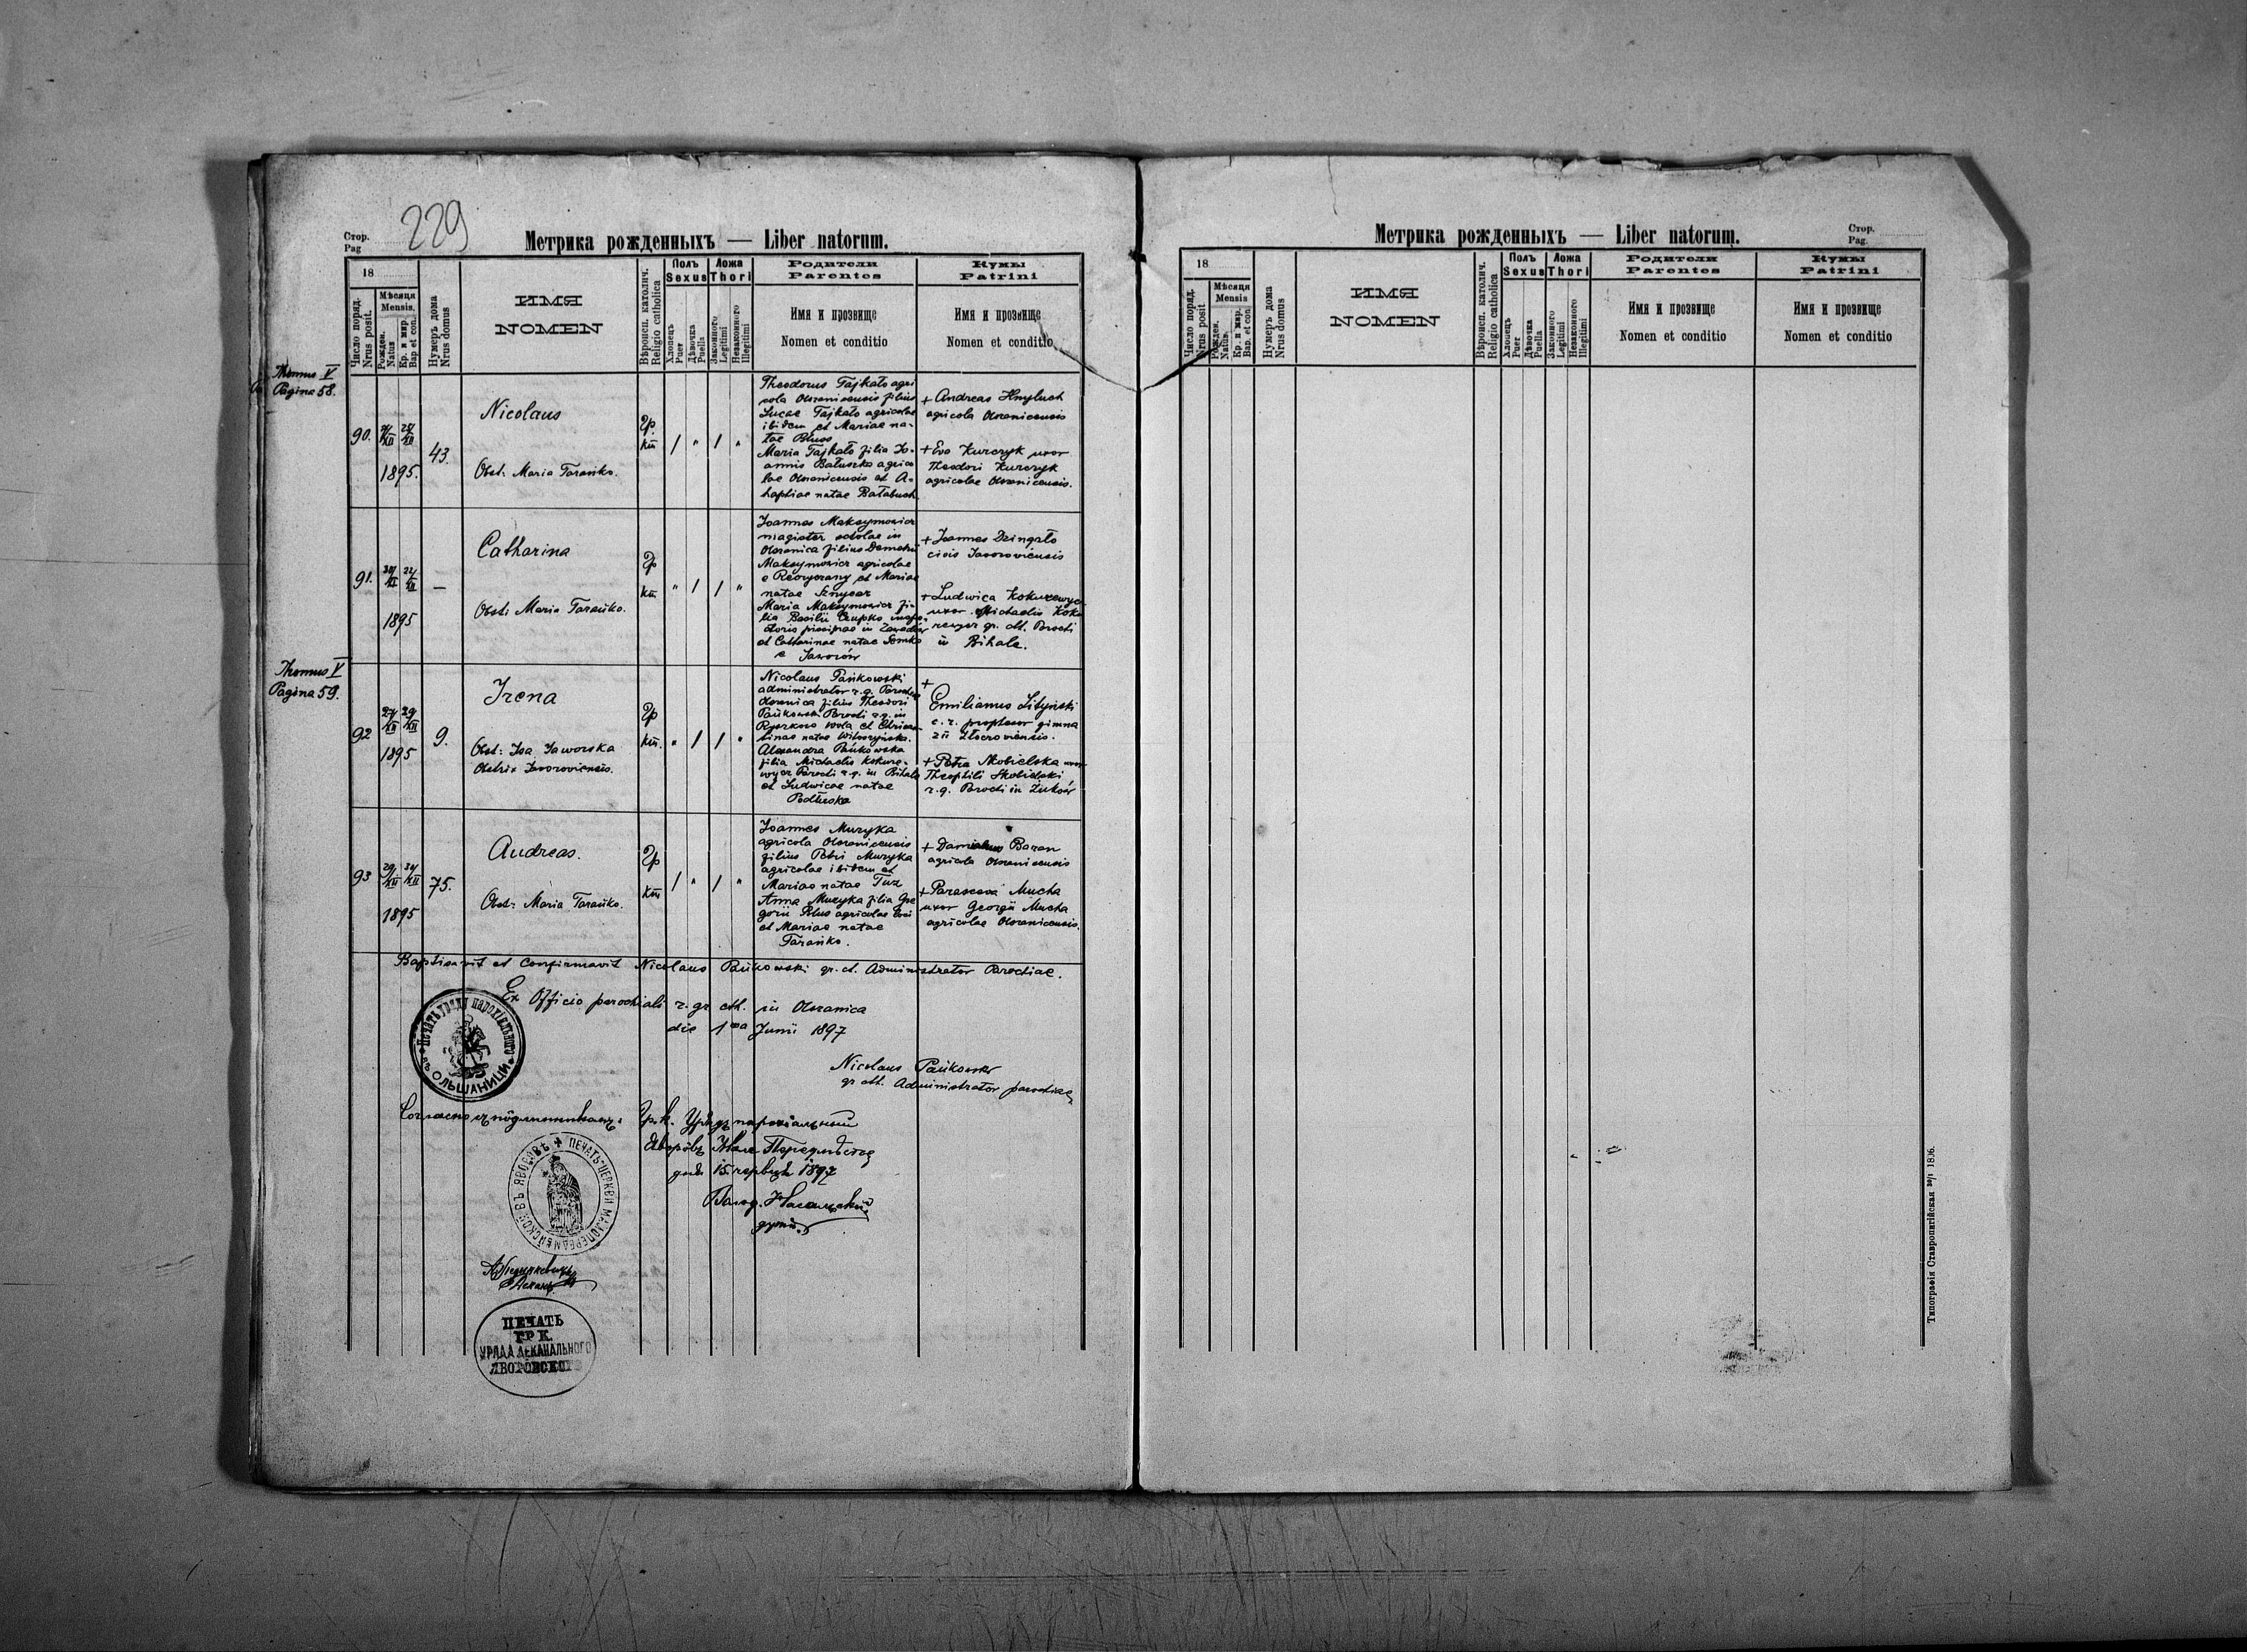 229
Стор.
Pag
Метрика рожденныхъ — Liber natorum.
18
Число поряд.
Nrus posit.
Мѣсяця
Mensis.
Рожден.
Natus
Кр. и мир.
Bap. et con.
Нумеръ дома
Nrus domus
ИМЯ
NOMEN
Вѣроисп. католич.
Religio catholica
Полъ
Sexus
Хлопецъ
Puer
Дѣвочка
Puella
Ложа
Thori
Законного
Legitimi
Незаконного
Illegitimi
Родители
Parentes
Имя и прозвище
Nomen et conditio
Кумы
Patrini
Имя и прозвище
Nomen et conditio
Thomus V
Pagina 58.
90.
1895.
43.
Nicolaus
Obst: Maria Tarańko.
Гр.
кт
1 " 1 "
Theodorus Tajkało agri
cola Olszanicensis filius
Lucae Tajkało agricolae
ibidem et Mariae na-
tae Bluss
Maria Tajkało filia Jo-
annis Batuszka agrico
lae Olszanicensis et A-
haphiae natae Bałabuch
+ Andreas Hnyluch
agricola Olszanicensis
+ Eva Kurczyk uxor
Theodori Kurczyk
agricolae Olszanicensis.
91.
1895
—
Catharina
Obst: Maria Tarańko.
Гр
кт
" 1 1 "
Joannes Maksymowicz
magister scholae in
Olszanica filius Demetrii
Maksymowicz agricolae
et Mariae
natae
Maria Maksymowicz fi-
lia Basilii Czupko
et Catharinae natae Semko
e Jaworów
+ Joannes Dzingało
civis Javoroviensis
+ Ludwica Kokurewycz
uxor Michaelis Koku
rewycz gr. cth. Parochi
in Bihale.
Thomus V
Pagina 59.
92
27/XII 29/XII
1895
9.
Irena
Obst: Isa Jaworska
Obstrix Javoroviensis.
Гр
кт.
" 1 1 "
Nicolaus Pańkowski
administrator r.g. Parochiae
Olszanica filius Theodori
Pańkowski Parochi r.g. in
wola et
tinae natae Witoszyńska.
Alexandra Pańkowska
filia Michaelis Kokure-
wycz Parochi r.g. in Bihale
et Ludwicae natae
Podłuska
+
Emilianus Lityński
c. r. professor gimna
zii Złoczoviensis.
+ Petra Skobielska uxor
Theophili Skobielski
r.g. Parochi in Żuków
93
29/XII 31/XII
1895
75.
Andreas.
Obst: Maria Tarańko.
Гр
кт
1 " 1 "
Joannes Muzyka
agricola Olszanicensis
filius Petri Muzyka
agricolae ibidem et
Mariae natae Tuz
Anna Muzyka filia Gre
gorii Blus agricolae
et Mariae natae
Tarańko.
+ Damianus Baran
agricola Olszanicensis
+ Parasceva Mucha
uxor Georgii Mucha
agricolae Olszanicensis.
Baptisavit et Confirmavit Nicolaus Pańkowski gr. ct. Administrator Parochiae.
Ex Officio parochiali r. gr cth. in Olszanica
die 1ma Junii 1897
Печать уряду парохіяльного
въ Ольшаници
Nicolaus Pańkowski
gr cth. Administrator parochiae
Гр. к. Урядъ парохіальный
Яворôвъ Мале Передмѣстье
дня 15 червця 1897
ПЕЧАТЬ ЦЕРКВИ МАЛОПЕРЕДМѢЙСКОЙ ВЪ ЯВОРОВѢ
ПЕЧАТЬ
ГР К.
УРЯДА ДЕКАНАЛЬНОГО
ЯВОРОВСКОГО
Метрика рожденныхъ — Liber natorum.
Стор.
Pag.
18
Число поряд.
Nrus posit
Мѣсяця
Mensis
Рожден.
Natus
Кр. и мир.
Bap. et con
Нумеръ дома
Nrus domus
ИМЯ
NOMEN
Вѣроисп. католич.
Religio catholica
Полъ
Sexus
Хлопецъ
Puer
Дѣвочка
Puella
Ложа
Thori
Законного
Legitimi
Незаконного
Illegitimi
Родители
Parentes
Имя и прозвище
Nomen et conditio
Кумы
Patrini
Имя и прозвище
Nomen et conditio
Типографія Ставропигійская